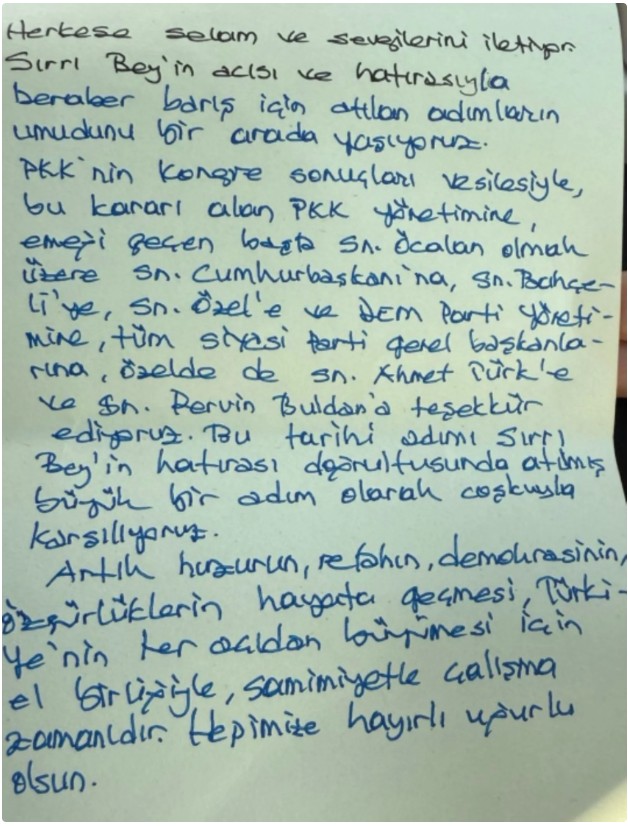 Herkese selam ve sevgilerini iletiyor.
Sırrı Bey'in acısı ve hatırasıyla
beraber barış için atılan adımların
umudunu bir arada yaşıyoruz.
PKK'nin kongre sonuçları vesilesiyle,
bu kararı alan PKK yönetimine,
emeği geçen başta Sn. Öcalan olmak
üzere Sn. Cumhurbaşkanı'na, Sn. Bahçe-
li'ye, Sn. Özel'e ve DEM Parti Yöneti-
mine, tüm siyasi Parti genel başkanla-
rına, özelde de Sn. Ahmet Türk'e
ve Sn. Pervin Buldan'a teşekkür
ediyoruz. Bu tarihi adımı Sırrı
Bey'in hatırası doğrultusunda atılmış
büyük bir adım olarak coşkuyla
karşılıyoruz.
Artık huzurun, refahın, demokrasinin,
özgürlüklerin hayata geçmesi, Türki-
ye'nin her açıdan büyümesi için
el birliğiyle, samimiyetle çalışma
zamanıdır. Hepimize hayırlı uğurlu
olsun.